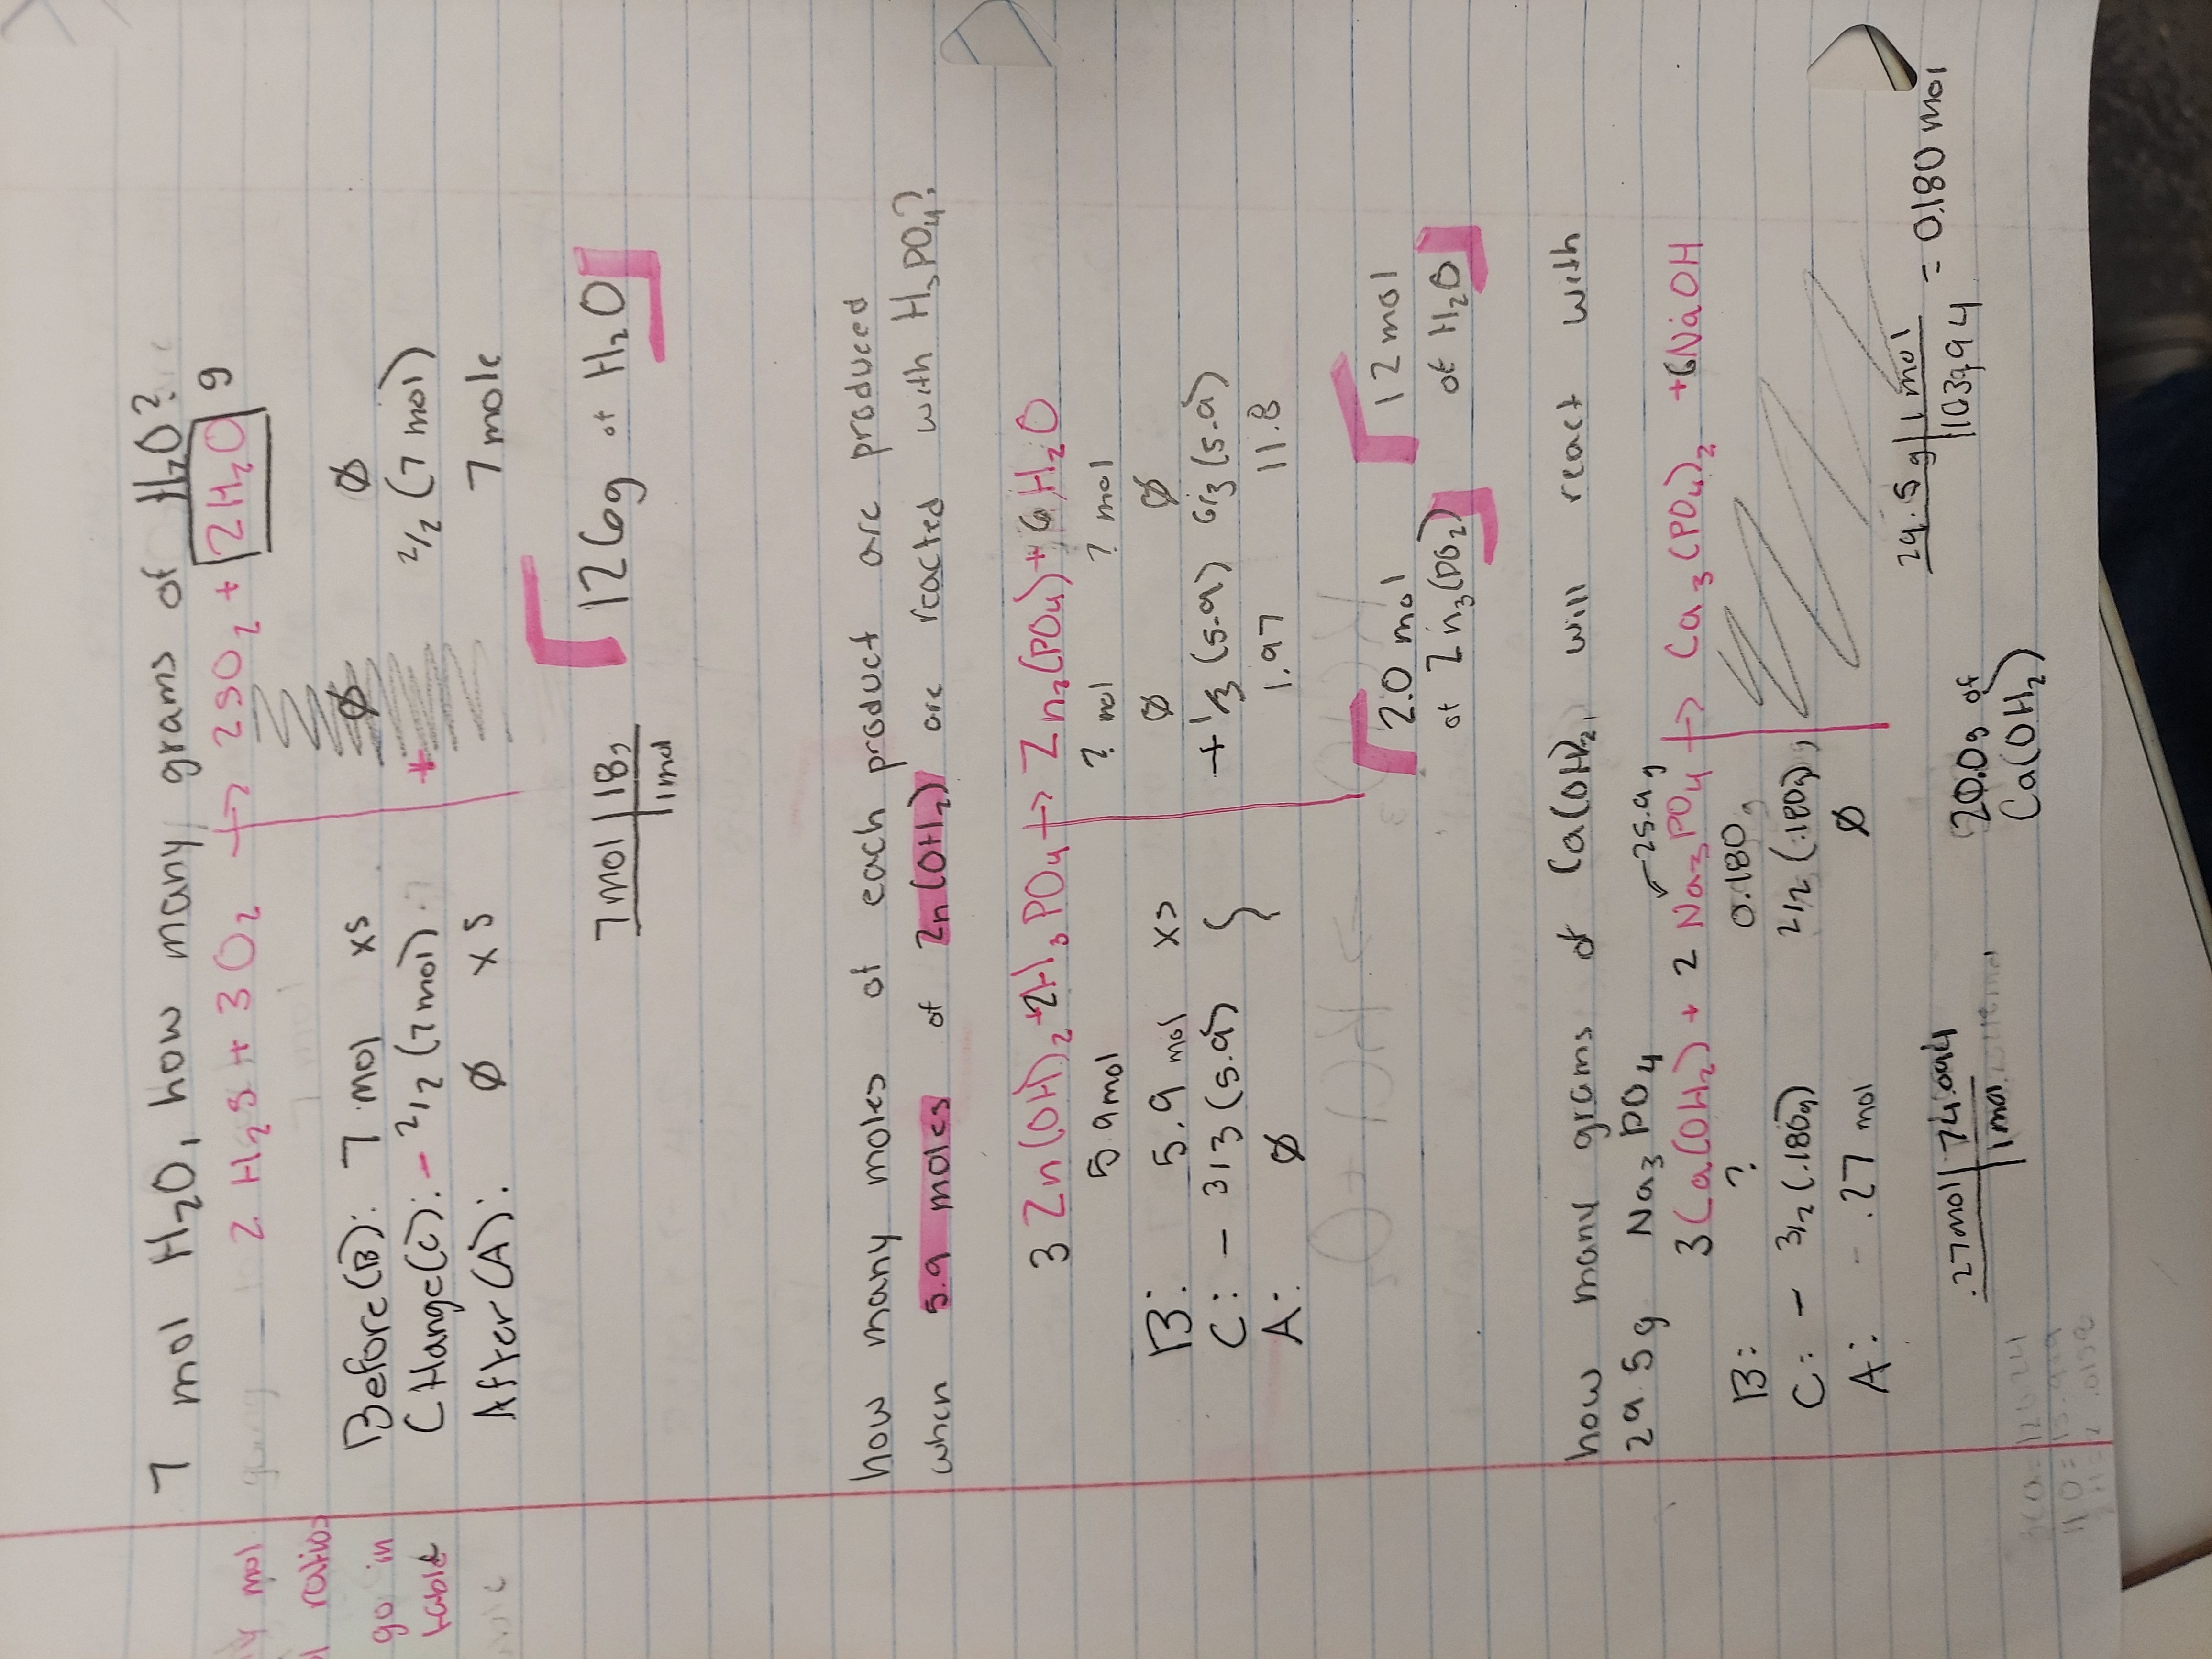 7 mol H₂O, how many grams of H₂O?
2 H₂S + 3O₂ → 2SO₂ + 2H₂O g
mol
ratios
go in
table
Before(B): 7 mol xs ∅ ∅
CHange(C): - 2/2 (7mol) + 2/2 (7 mol)
After(A): ∅ xs 7 mole
7mol | 18g
1mol
126g of H₂O
how many moles of each product are produced
when 5.9 moles of Zn(OH₂) are reacted with H₃PO₄?
3 Zn(OH)₂ + 2H₃PO₄ → Zn₃(PO₄) + 6 H₂O
5.9mol ? mol ? mol
B: 5.9 mol xs ∅ ∅
C: - 3/3 (5.9) + 1/3 (5.9) 6/3 (5.9)
A: ∅ 1.97 11.8
2.0 mol 12 mol
of Zn₃(PO₂) of H₂O
how many grams of Ca(OH)₂, will react with
29.5g Na₃PO₄
25.9g
3Ca(OH₂) + 2 Na₃PO₄ → Ca₃(PO₄)₂ + 6NaOH
B: ? 0.180g
C: - 3/2 (.180g) 2/2 (.180g)
A: - .27 mol ∅
29.5g | 1 mol = 0.180 mol
163.94
.27mol | 74.094
1mol
20.0g of
Ca(OH₂)